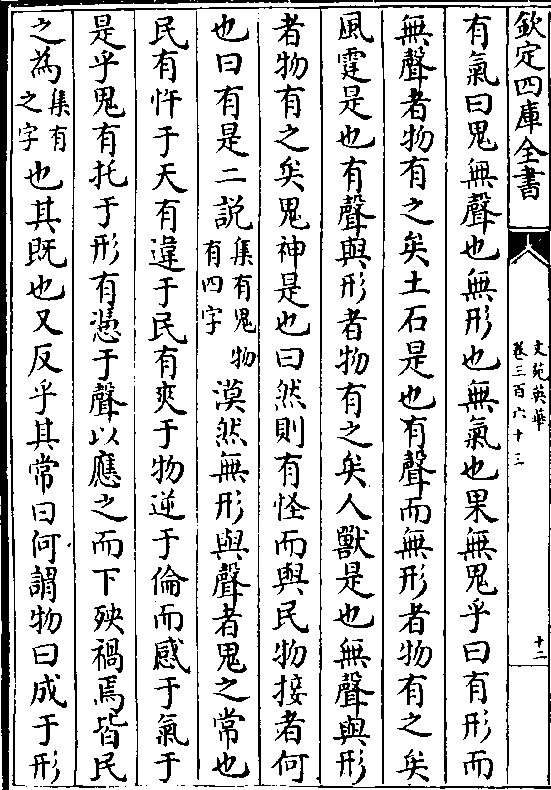 欽定四庫全書
文苑英華
卷三百六十三
十二
有氣曰鬼無聲也無形也無氣也果無鬼乎曰有形而
無聲者物有之矣土石是也有聲而無形者物有之矣
風霆是也有聲與形者物有之矣人獸是也無聲與形
者物有之矣鬼神是也曰然則有怪而與民物接者何
也曰有是二說集有鬼物有四字漠然無形與聲者鬼之常也
民有忤于天有違于民有爽于物逆于倫而感于氣于
是乎鬼有托于形有憑于聲以應之而下殃禍焉皆民
之為集有之字也其既也又反乎其常曰何謂物曰成于形